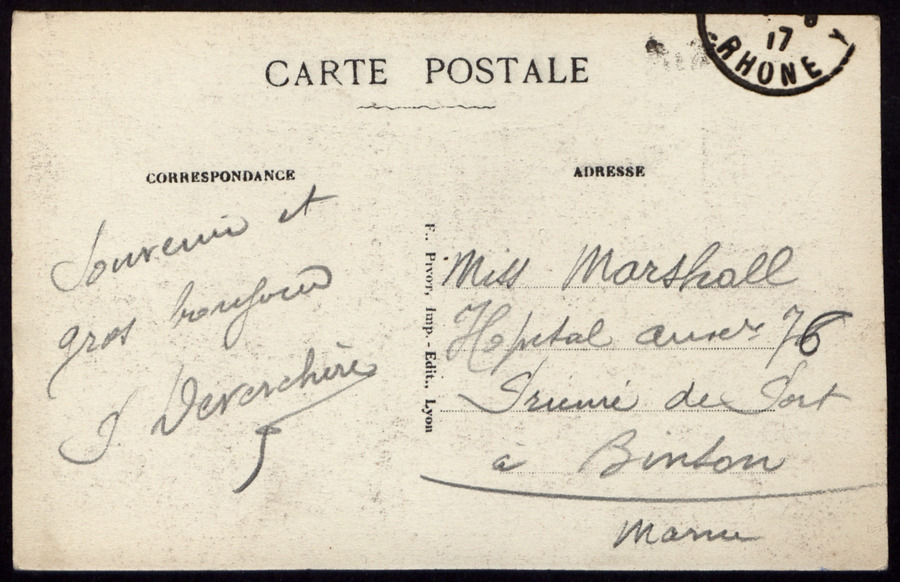 CARTE POSTALE
17
RHONE
CORRESPONDANCE
ADRESSE
Souvenir et
gros bonjour
J Deverchère
F. Pivot, Imp.-Edit., Lyon
Miss Marshall
Hopital auxre 76
Prieuré de Port
à Binson
Marne